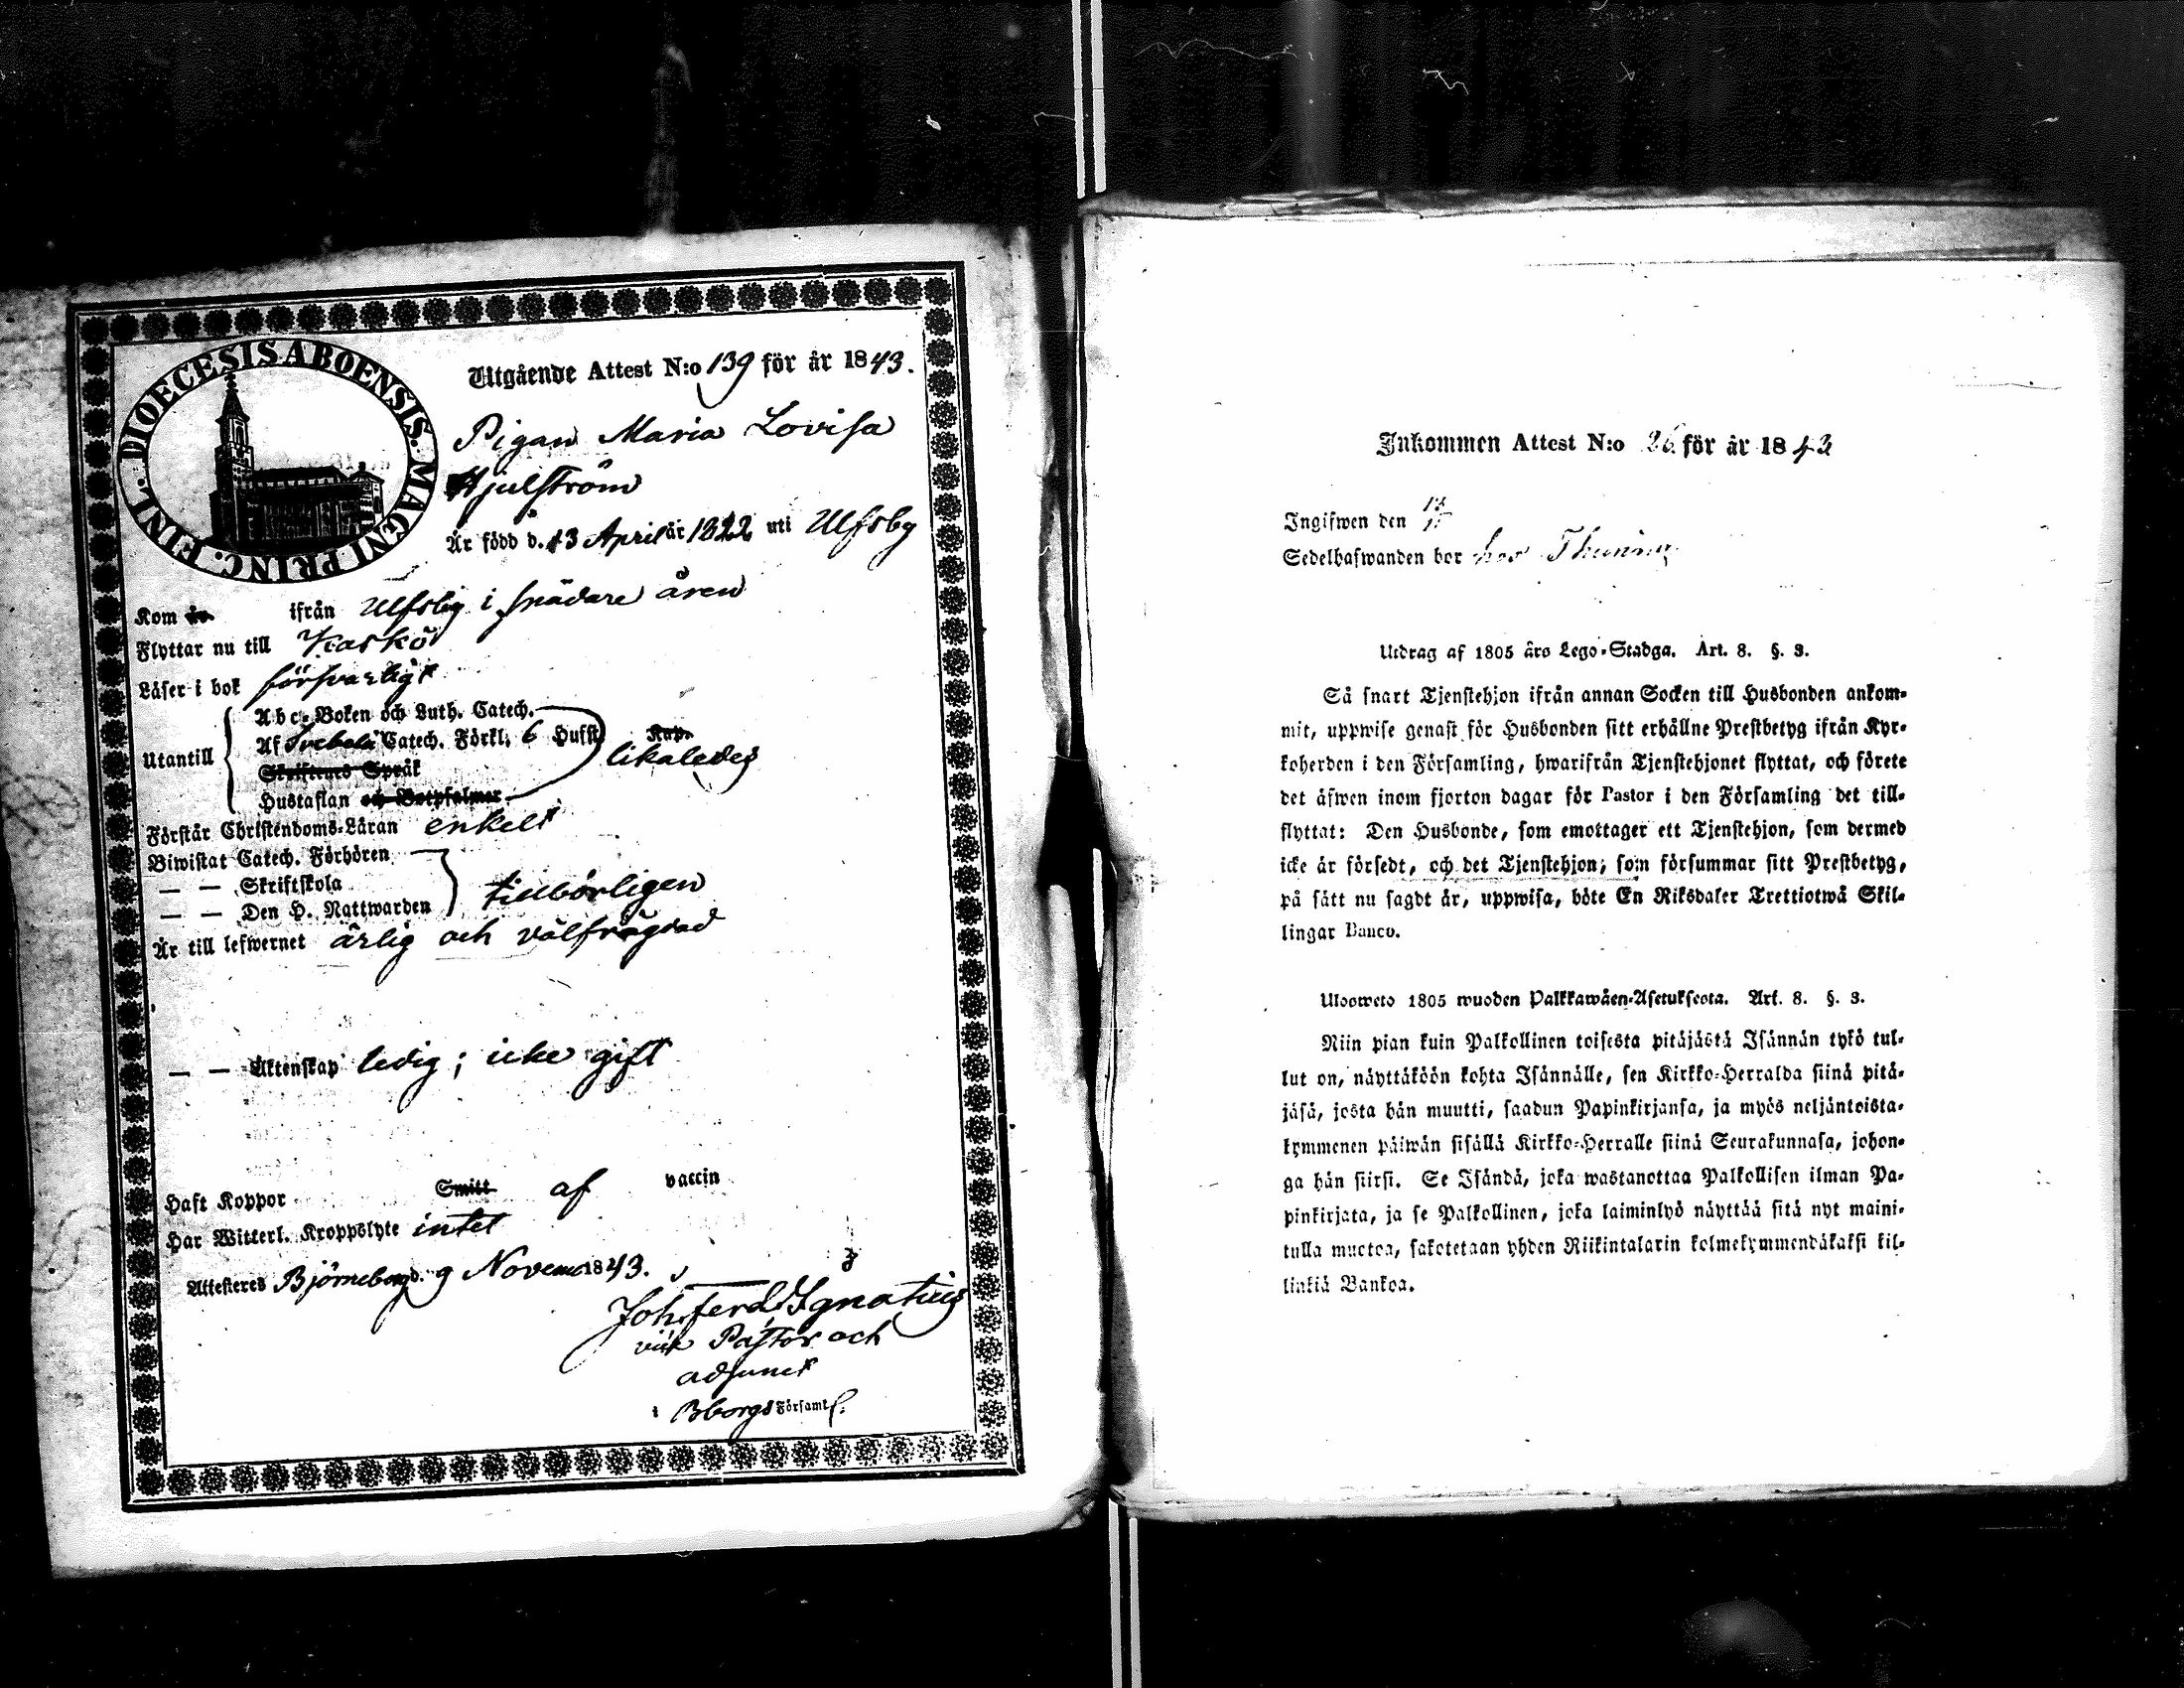 DIOECESIS ABOENSIS. MAGNI PRINC. FINL.
Utgående Attest N:o 139 för år 1843.
Pigan Maria Lovisa
Hjulström
Är född d. 13 April år 1822 uti Ulfsby
Kom år ifrån Ulfsby i spädare åren
Flyttar nu till Kaskö
Läser i bok försvarligt
Utantill
Abc-Boken och Luth. Catech.
Af Svebeli Catech. Förkl. 6 Hufst. Kap.
Skriftens Språk
likaledes
Hustaflan och Botpsalmer
Förstår Christendoms-Läran enkelt
Biwistat Catech. Förhören
— — Skriftskola
tillbörligen
— — Den H. Nattwarden
Är till lefwernet ärlig och välfrägdad
— — Äktenskap ledig; icke gift
Haft Koppor Smitt af vaccin
Har Witterl. Kroppslyte intet
Attesteras Björneborg d. 9 November 1843.
Joh. Ferd. Ignatius
vik Pastor och
adjunct
i Bborgs Församl.
Inkommen Attest N:o 26 för år 1843
Ingifwen den
Sedelhafwanden bor hos
Utdrag af 1805 års Lego-Stadga. Art. 8. §. 3.
Så snart Tjenstehjon ifrån annan Socken till Husbonden ankom-
mit, uppwise genast för Husbonden sitt erhållne Prestbetyg ifrån Kyr-
koherden i den Församling, hwarifrån Tjenstehjonet flyttat, och förete
det äfwen inom fjorton dagar för Pastor i den Församling det till-
flyttat: Den Husbonde, som emottager ett Tjenstehjon, som dermed
icke är försedt, och det Tjenstehjon, som försummar sitt Prestbetyg,
på sätt nu sagdt är, uppwisa, böte En Riksdaler Trettiotwå Skil-
lingar Banco.
Ulosweto 1805 wuoden Palkkawäen-Asetuksesta. Art. 8. §. 3.
Niin pian kuin Palkollinen toisesta pitäjästä Isännän tykö tul-
lut on, näyttäköön kohta Isännälle, sen Kirkko-Herralda siinä pitä-
jäsä, josta hän muutti, saadun Papinkirjansa, ja myös neljäntoista-
kymmenen päiwän sisällä Kirkko-Herralle siinä Seurakunnasa, johon-
ga hän siirsi. Se Isändä, joka wastanottaa Palkollisen ilman Pa-
pinkirjata, ja se Palkollinen, joka laiminlyö näyttää sitä nyt maini-
tulla muotoa, sakotetaan yhden Riikintalarin kolmekymmendäkaksi kil-
linkiä Bankoa.